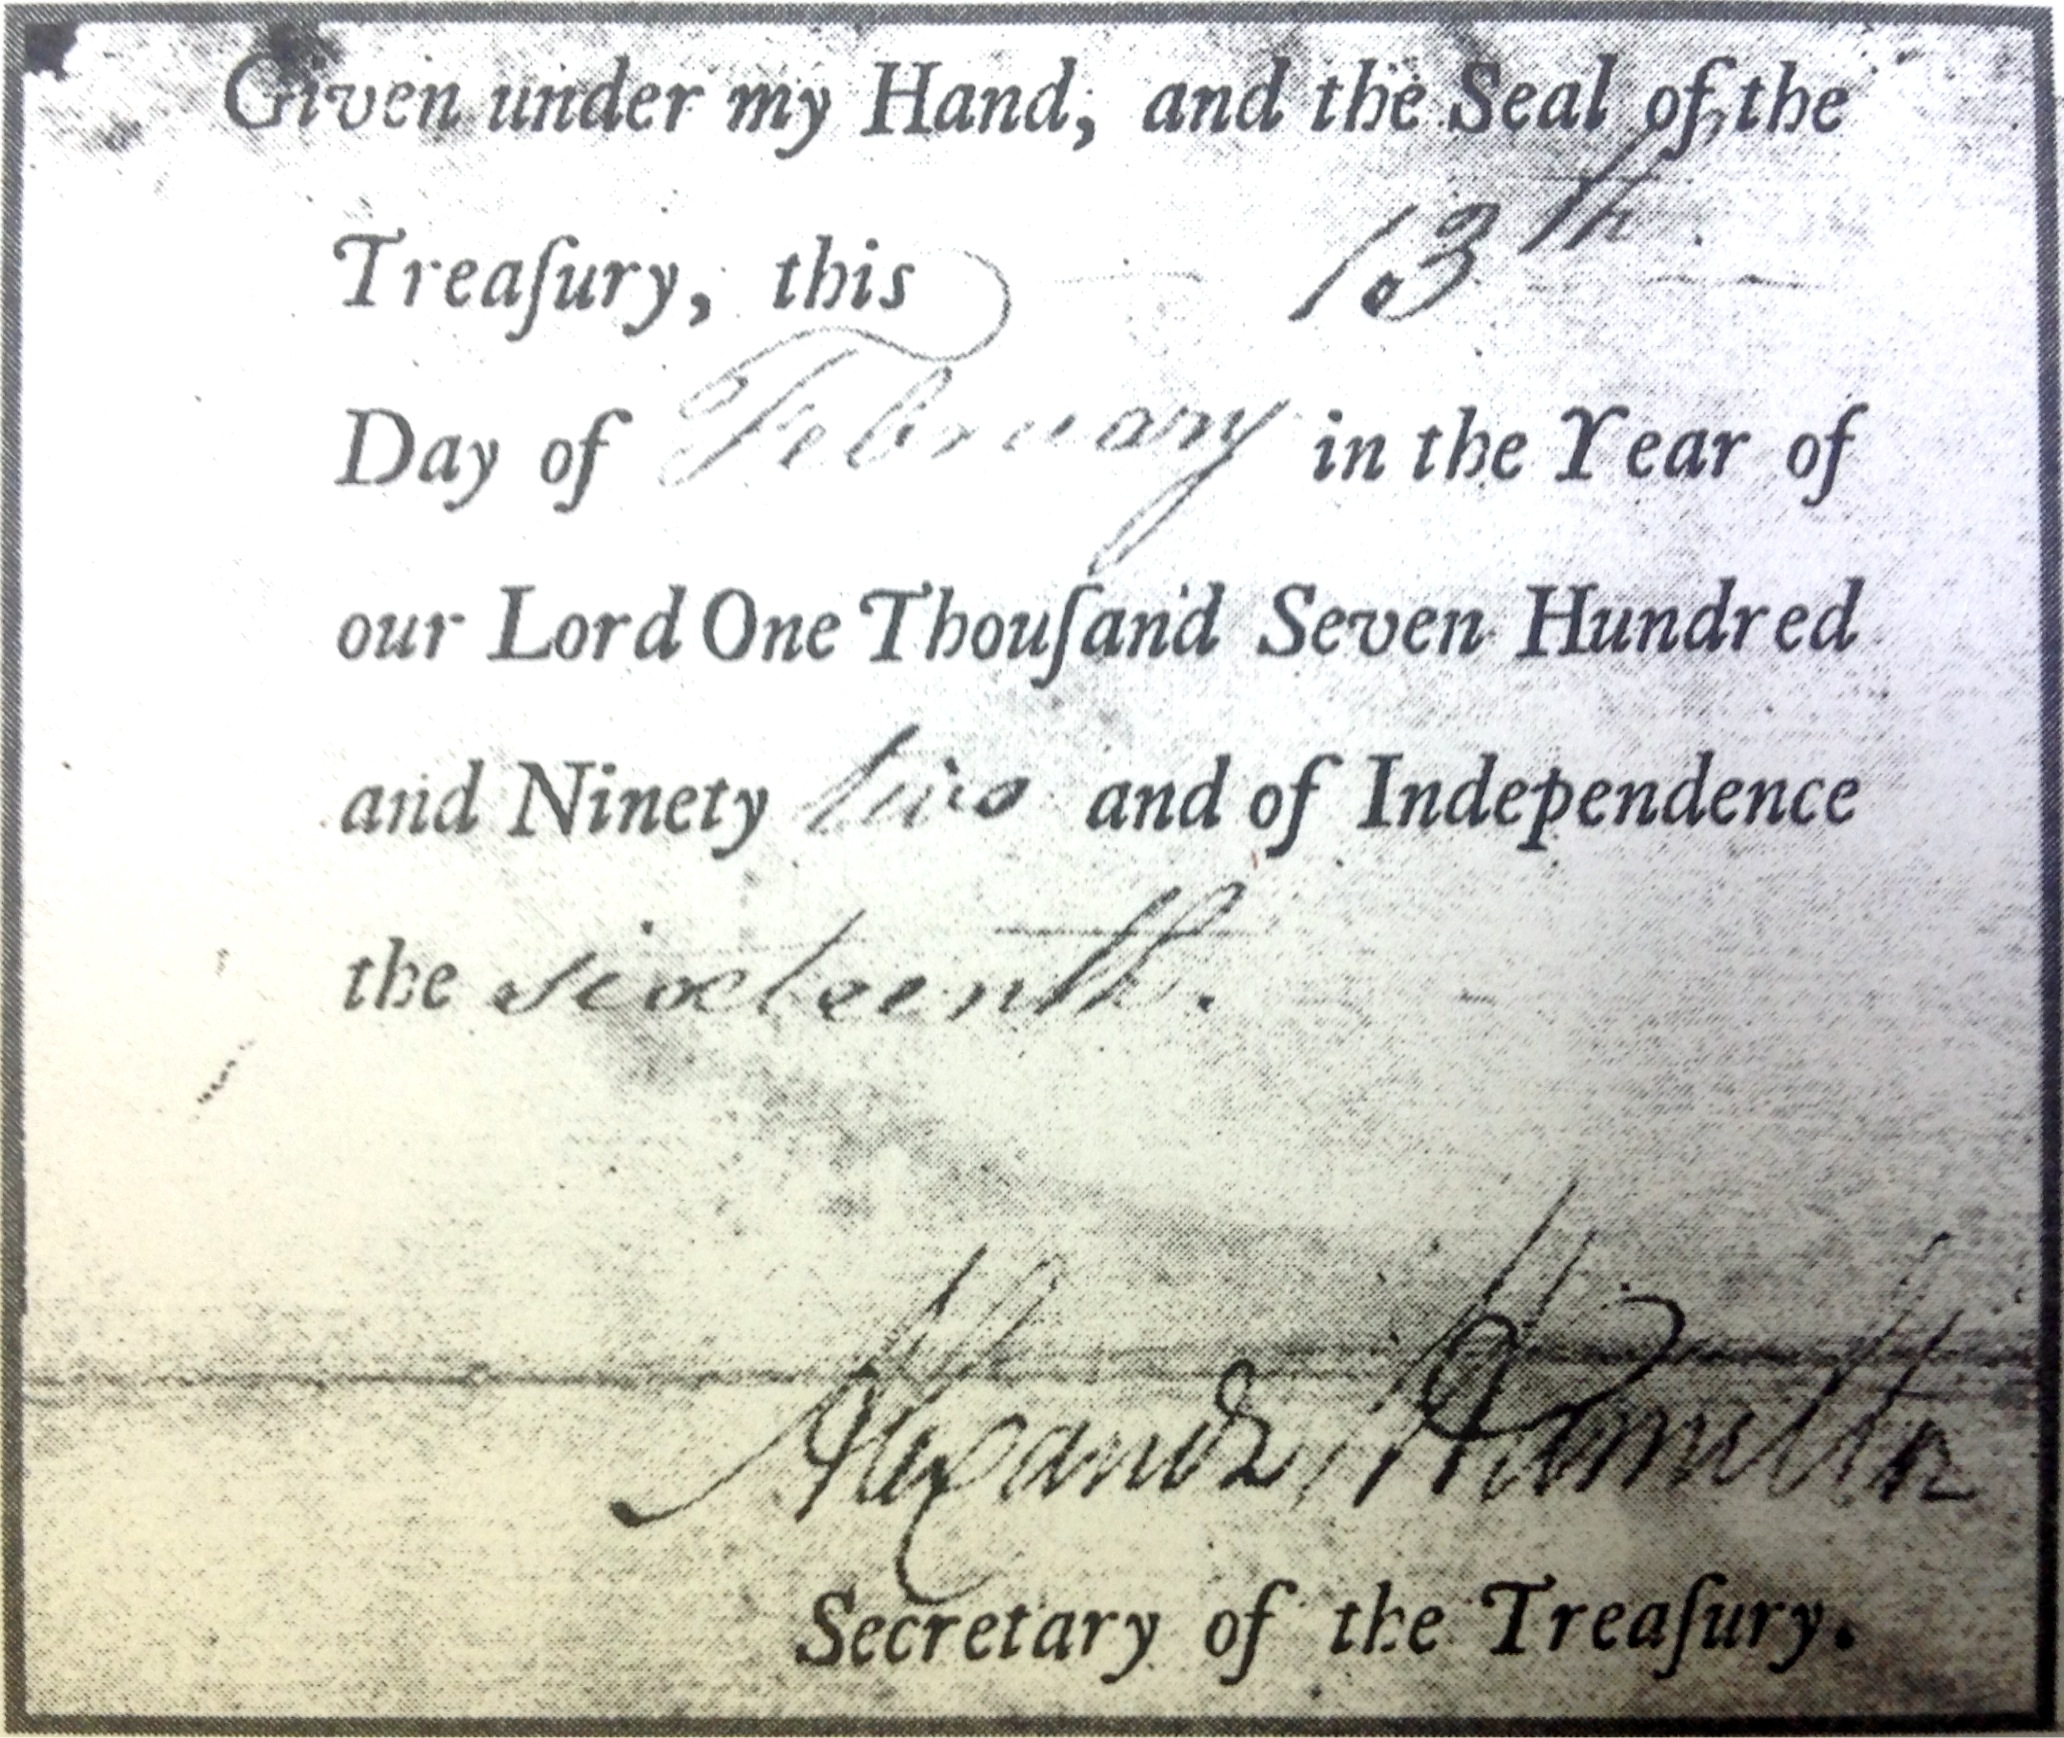 Given under my Hand, and the Seal of the
Treaſury, this 13th.
Day of February in the Year of
our Lord One Thouſand Seven Hundred
and Ninety two and of Independence
the sixteenth.
Alexander Hamilton
Secretary of the Treaſury.